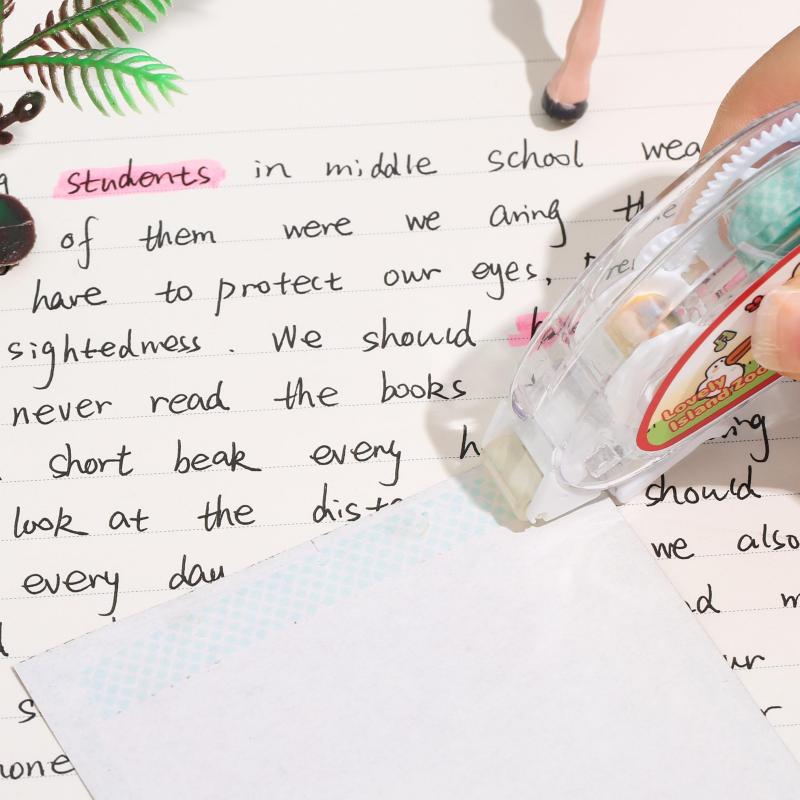 students in middle school wea
of them were we aring the
have to protect our eyes,
sightedness. We should
never read the books
short beak every h
look at the dista
every day
should
we also
Lovely
Island Zoo